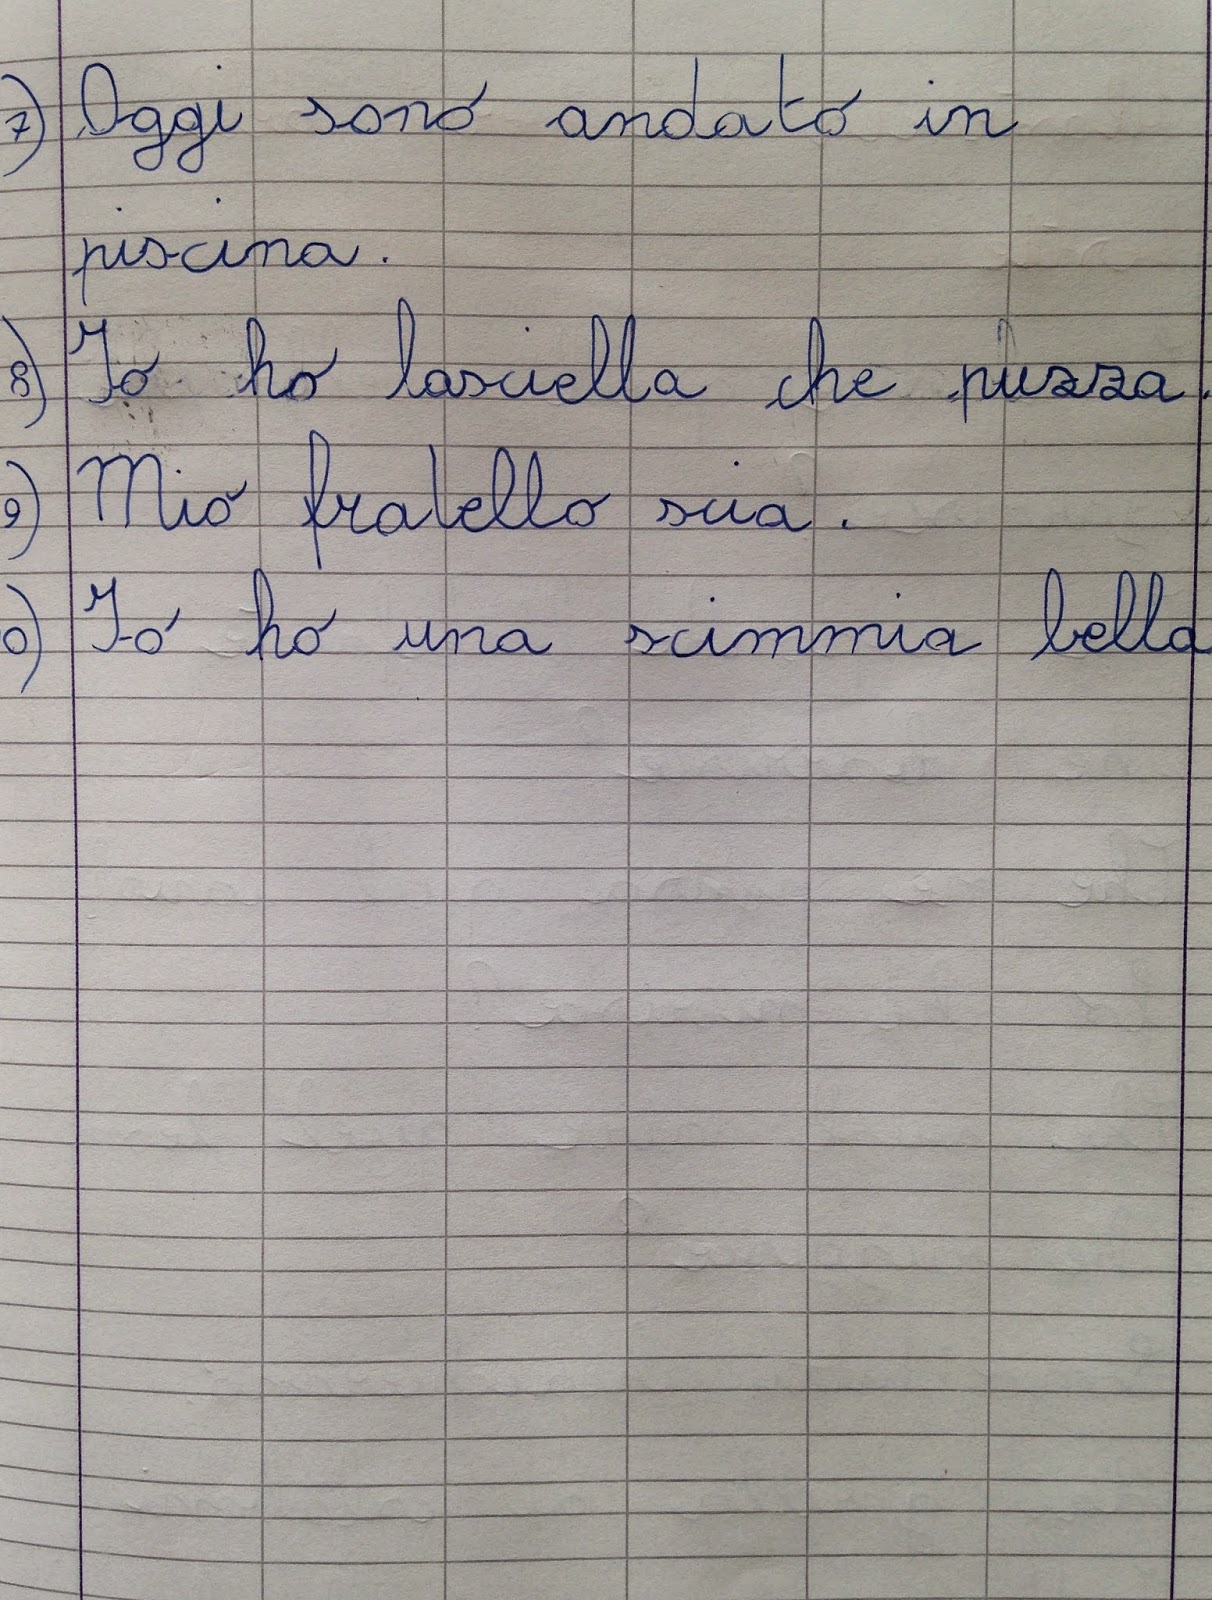 7) Oggi sono andato in
piscina.
8) Io ho lasciella che puzza.
9) Mio fratello scia.
0) Io ho una scimmia bella